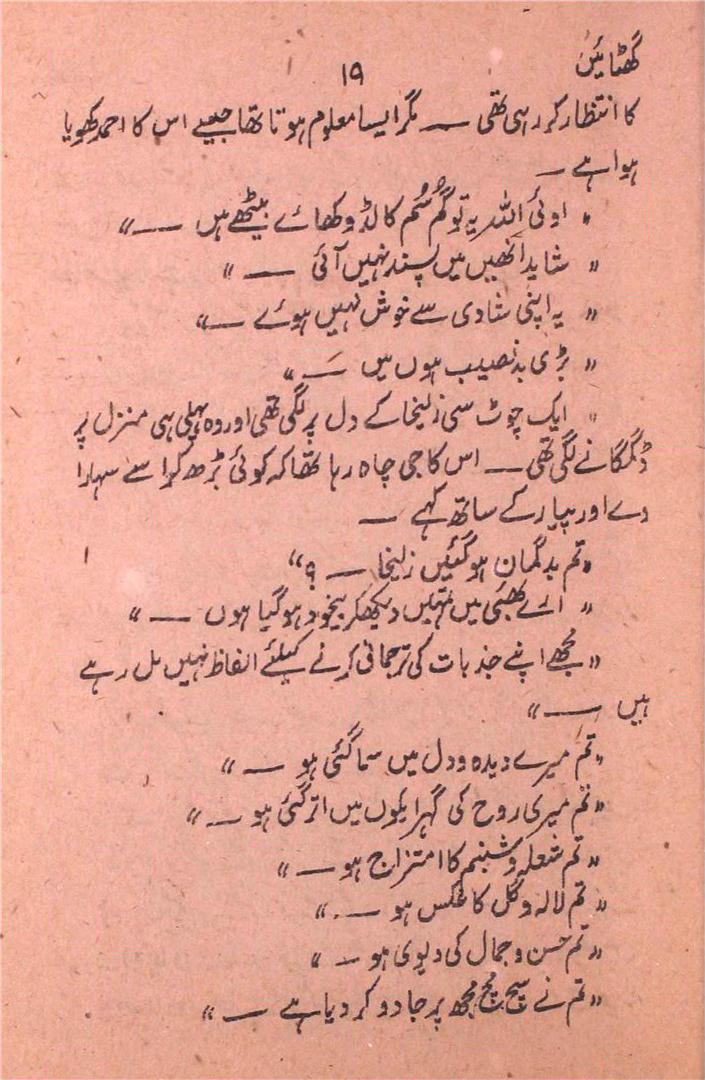 گھٹائیں
۱۹
کا انتظار کر رہی تھی — مگر ایسا معلوم ہوتا تھا جیسے اس کا احمد کھویا
ہوا ہے —
" اوئی اللہ یہ تو گم سُم کا لڈو کھائے بیٹھے ہیں — "
" شاید انھیں میں پسند نہیں آئی — "
" یہ اپنی شادی سے خوش نہیں ہوئے — "
" بڑی بدنصیب ہوں میں — "
" ایک چوٹ سی زلیخا کے دل پر لگی تھی اور وہ پہلی ہی منزل پر
ڈگمگانے لگی تھی — اس کا جی چاہ رہا تھا کہ کوئی بڑھ کر اسے سہارا
دے اور پیار کے ساتھ کہے —
" تم بدگمان ہو گئیں زلیخا — ؟ "
" ارے بھئی میں تمہیں دیکھکر بیخود ہو گیا ہوں — "
" مجھے اپنے جذبات کی ترجمانی کرنے کیلئے الفاظ نہیں مل رہے
ہیں — "
" تم میرے دیدہ و دل میں سما گئی ہو — "
" تم میری روح کی گہرایکوں میں اتر گئی ہو — "
" تم شعلہ و شبنم کا امتزاج ہو — "
" تم لالہ و گل کا عکس ہو — "
" تم حسن و جمال کی دیوی ہو — "
" تم نے سچ مچ مجھ پر جادو کر دیا ہے — "